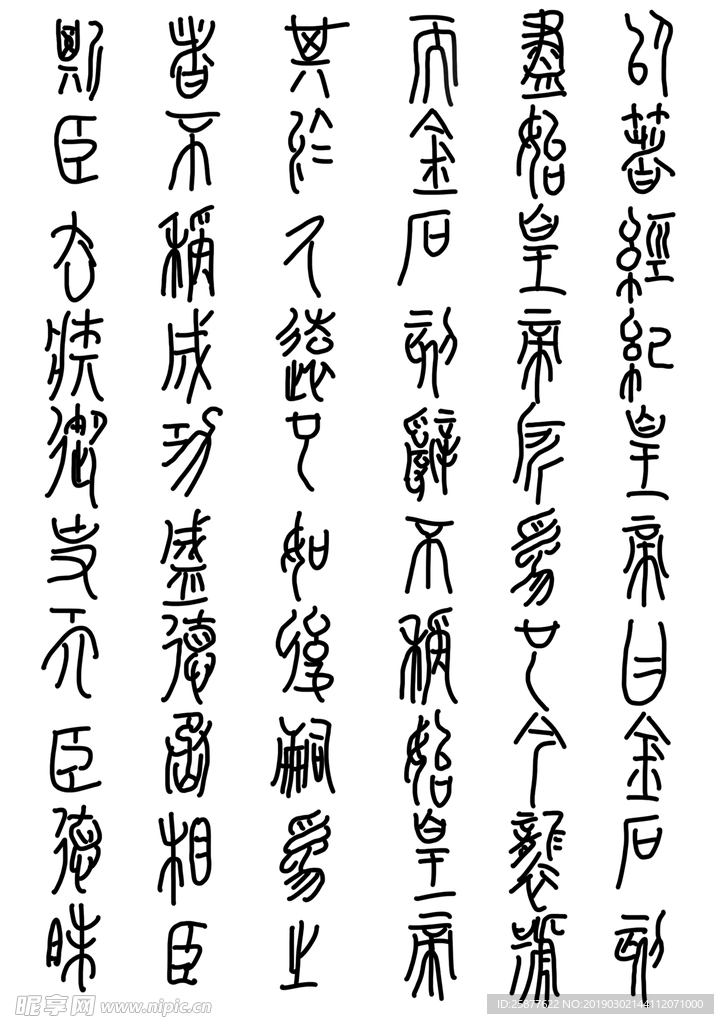 以著經紀皇帝曰金石刻
盡始皇帝所為也今襲號
而金石刻辭不稱始皇帝
其於久遠也如後嗣為之
者不稱成功盛德丞相臣
斯臣去疾御史夫臣德昧
昵享网 www.nipic.cn
ID:25877522 NO:20190302144112071000